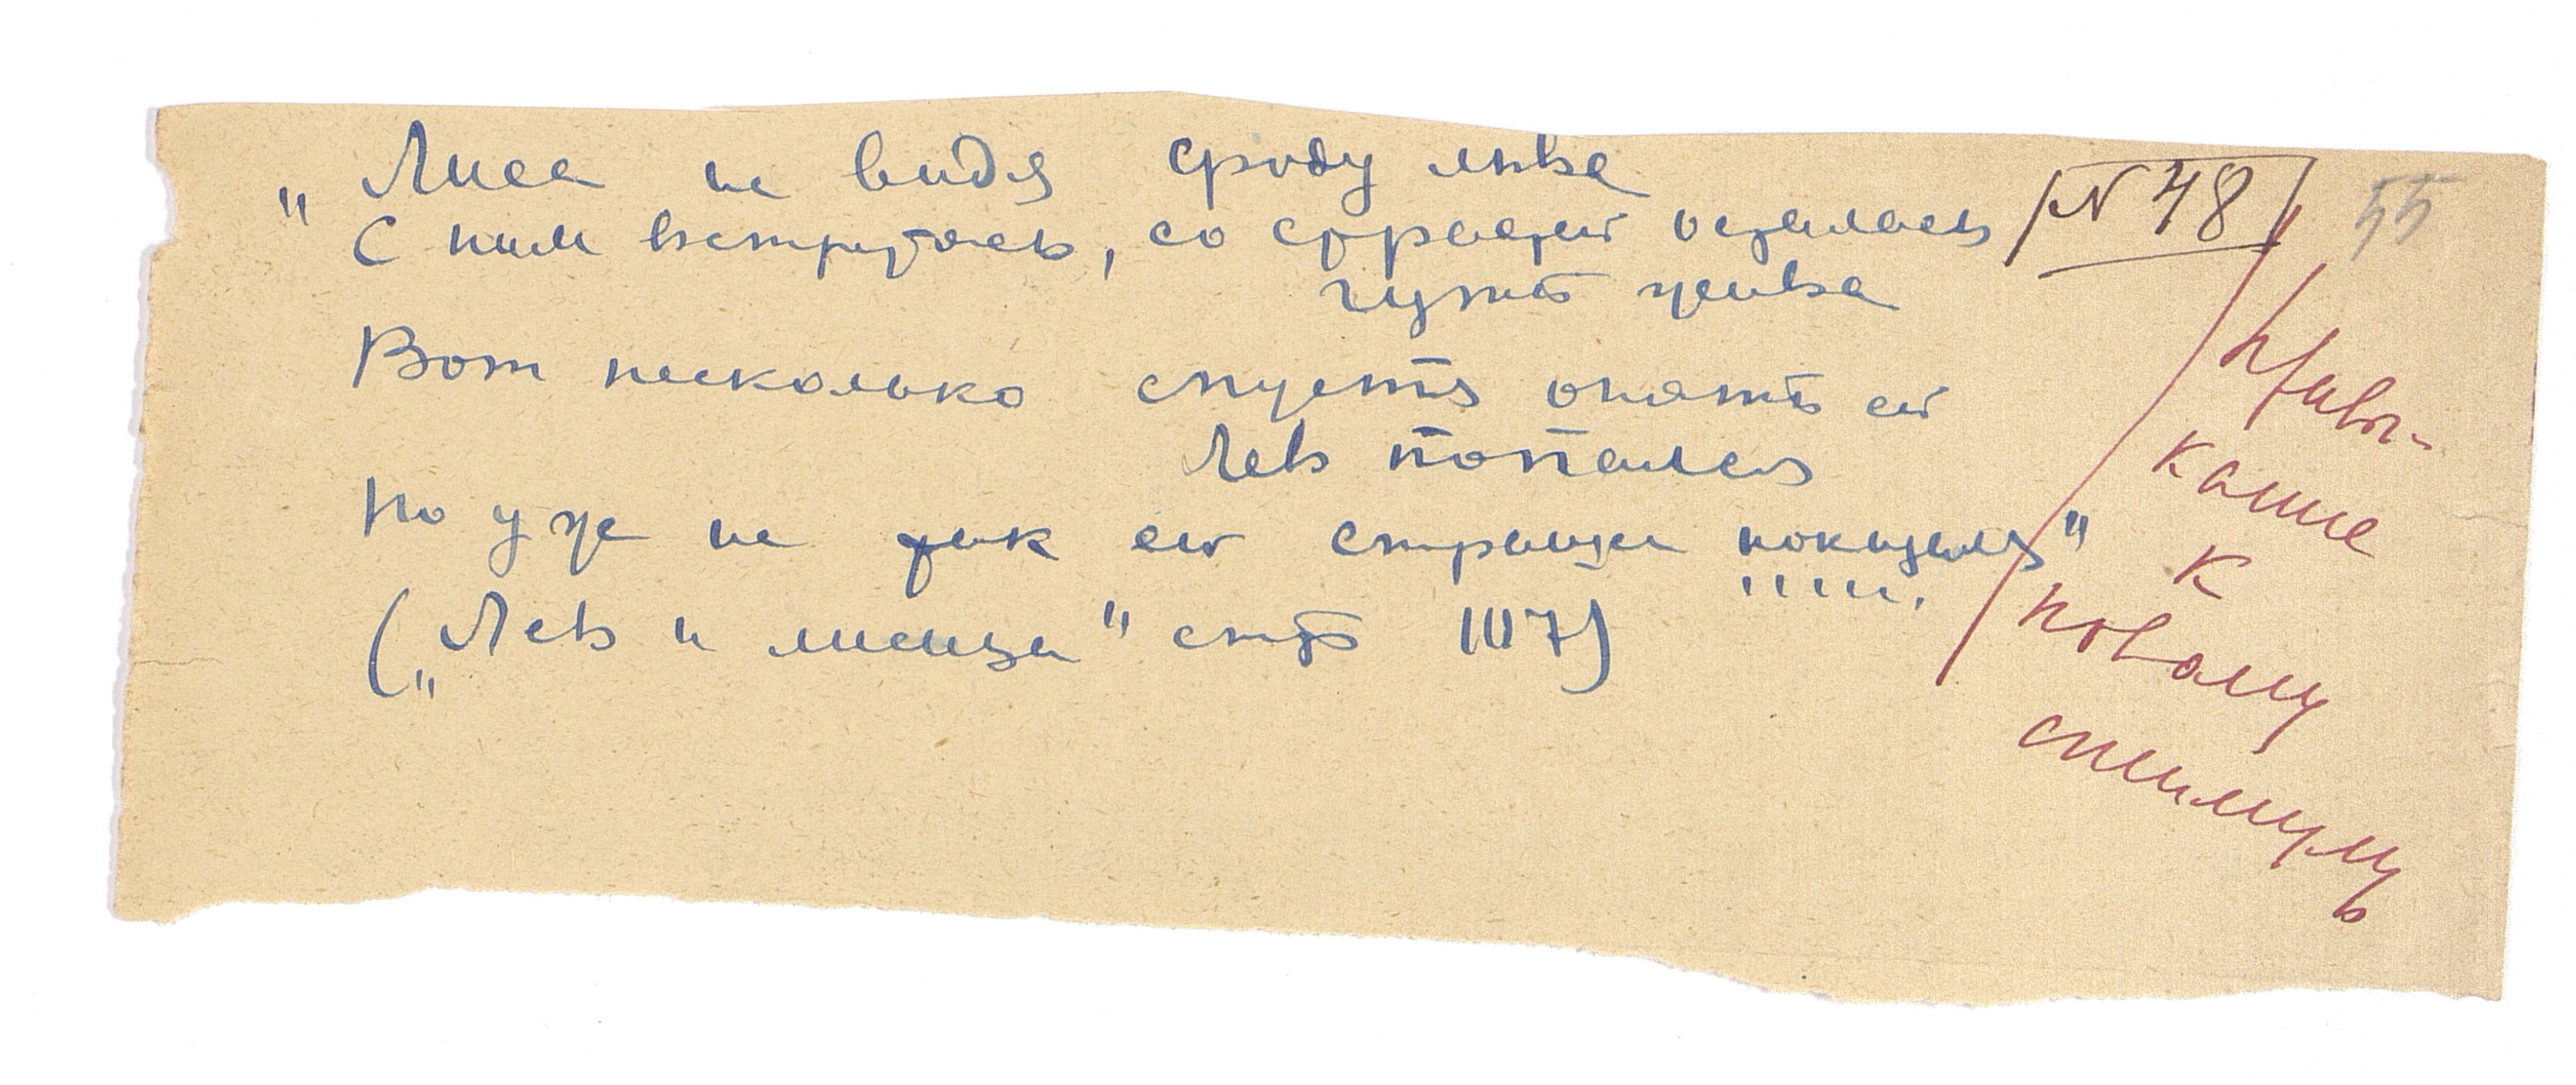 „Лиса не видя сроду льва
С ним встретясь, со страстей осталась
чуть жива
Вот несколько спустя опять ей
Лев попался
Но уж не так ей страшен показался"
(„Лев и лисица" стр 107)
N 48
55
Привы-
кание
к
новому
стимулу